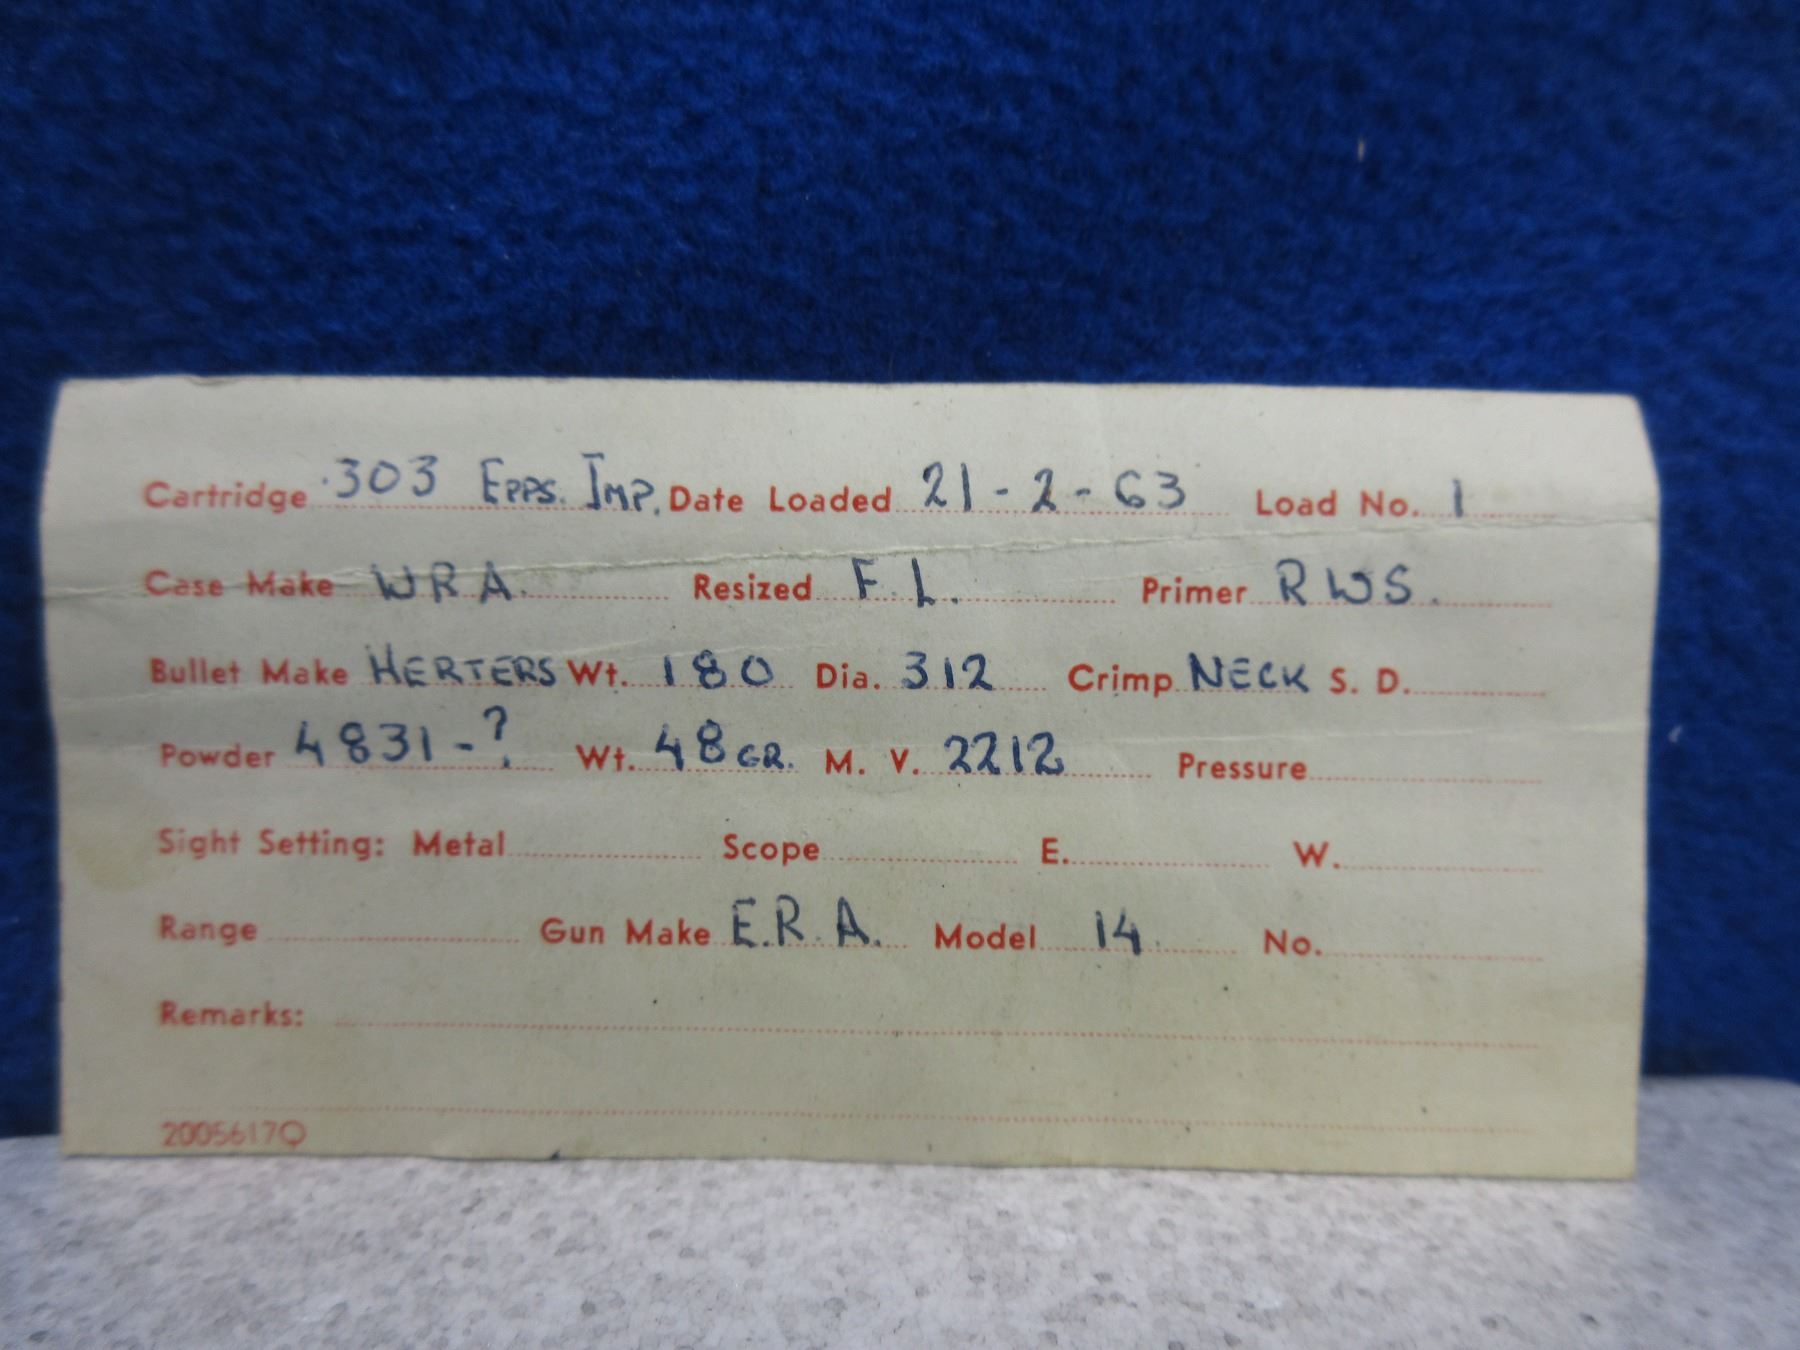 Cartridge .303 EPPS. IMP. Date Loaded 21-2-63 Load No. 1
Case Make WRA. Resized F.L. Primer RWS.
Bullet Make HERTERS Wt. 180 Dia. 312 Crimp NECK S. D.
Powder 4831-? Wt. 48 GR. M. V. 2212 Pressure
Sight Setting: Metal Scope E. W.
Range Gun Make E.R.A. Model 14 No.
Remarks:
2005617Q